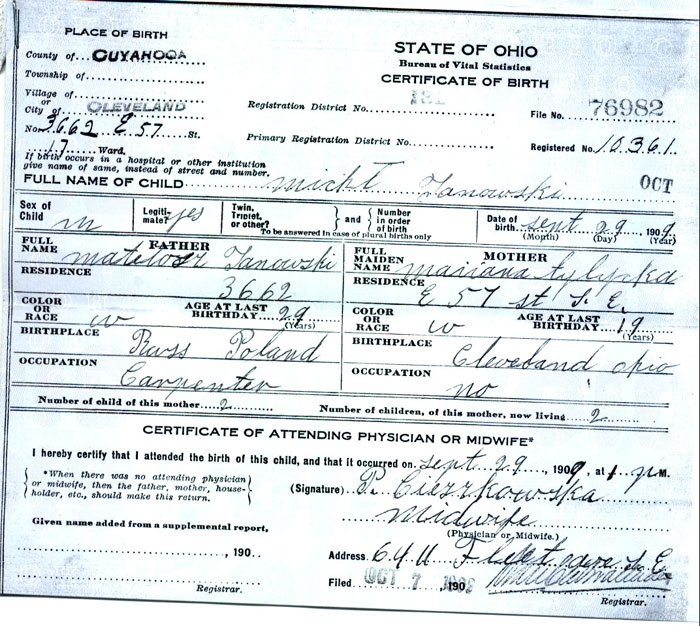 PLACE OF BIRTH
County of CUYAHOGA
Township of
Village of
or
City of CLEVELAND
No. 3662 E 57 St.
17 Ward.
If birth occurs in a hospital or other institution
give name of same, instead of street and number.
STATE OF OHIO
Bureau of Vital Statistics
CERTIFICATE OF BIRTH
Registration District No.
File No. 76982
Primary Registration District No.
Registered No. 10361
FULL NAME OF CHILD micht Janowski
OCT
Sex of Child m
Legiti-mate? yes
Twin, Triplet, or other?
and
Number in order of birth
To be answered in case of plural births only
Date of birth sept 29 1909
(Month) (Day) (Year)
FATHER
FULL NAME Janowski
RESIDENCE 3662
COLOR OR RACE w
AGE AT LAST BIRTHDAY 29
(Years)
BIRTHPLACE Russ Poland
OCCUPATION Carpenter
MOTHER
FULL MAIDEN NAME mariana
RESIDENCE E 57 st S. E.
COLOR OR RACE w
AGE AT LAST BIRTHDAY 19
(Years)
BIRTHPLACE Cleveland ohio
OCCUPATION no
Number of child of this mother 2
Number of children, of this mother, now living 2
CERTIFICATE OF ATTENDING PHYSICIAN OR MIDWIFE*
I hereby certify that I attended the birth of this child, and that it occurred on sept 29, 1909, at 1 p M.
*When there was no attending physician
or midwife, then the father, mother, house-
holder, etc., should make this return.
(Signature) P. Ciezkowska
midwife
(Physician or Midwife.)
Given name added from a supplemental report,
, 190
Registrar.
Address 6411 Fleet ave S. E
Filed OCT 7 190
Registrar.